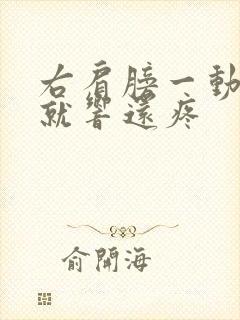 右肩膀一動
就響還疼
俞開海